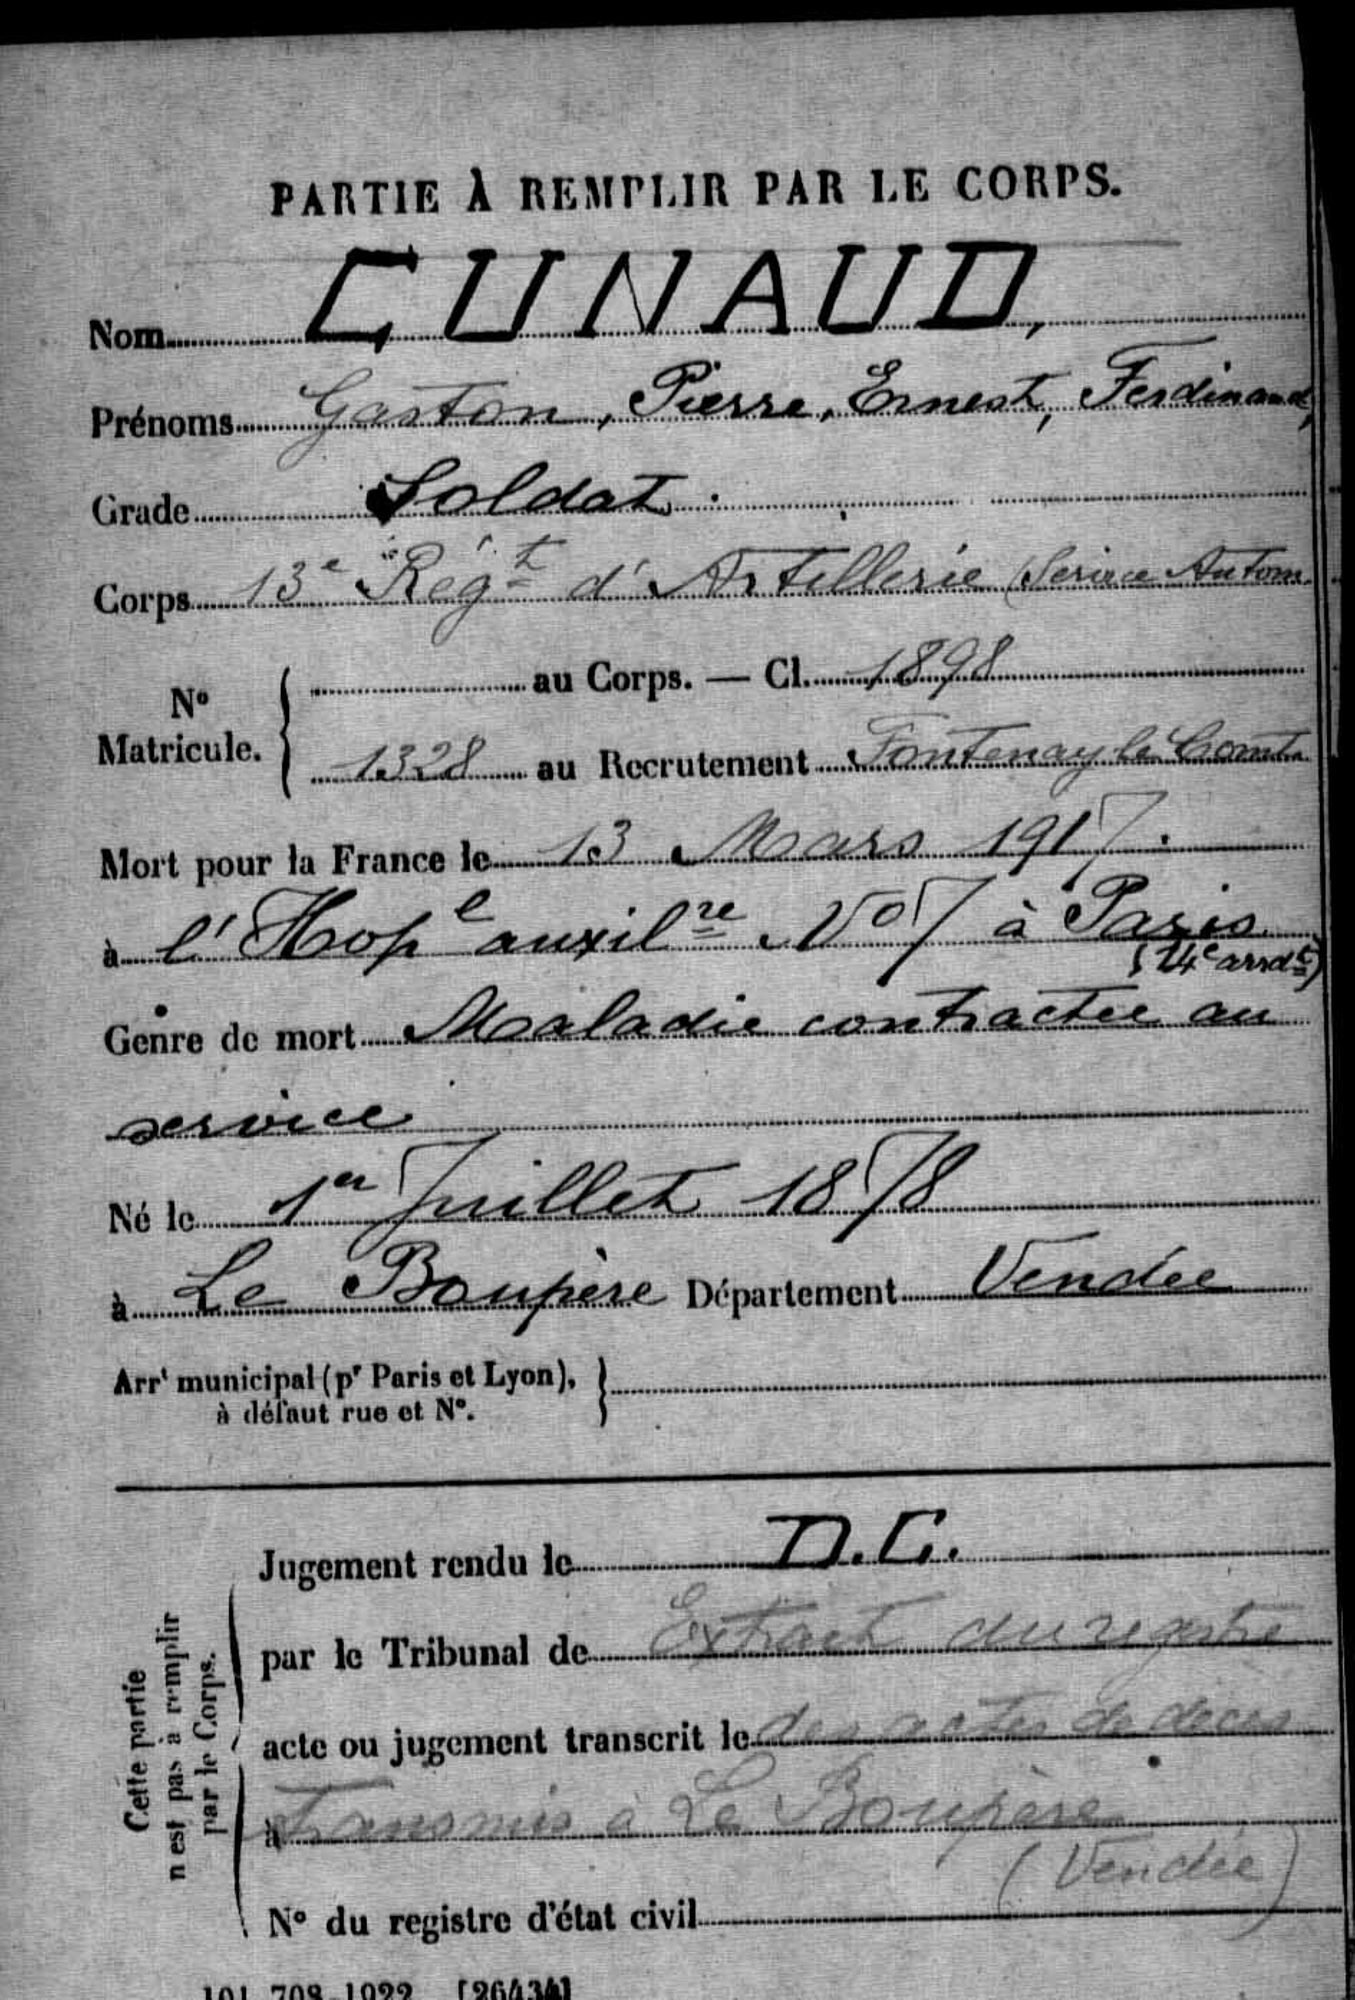 PARTIE À REMPLIR PAR LE CORPS.
Nom CUNAUD,
Prénoms Gaston, Pierre, Ernest, Ferdinand,
Grade Soldat.
Corps 13e Régt d'Artillerie (Service Autom.
N° Matricule. { au Corps. — Cl. 1898
1328 au Recrutement Fontenay le Comte
Mort pour la France le 13 Mars 1917.
à l'Hople auxilre No 7 à Paris
(14e arrdt)
Genre de mort Maladie contractée au
service
Né le 1er Juillet 1878
à Le Boupère Département Vendée
Arrt municipal (pr Paris et Lyon), }
à défaut rue et N°.
Cette partie
n'est pas à remplir
par le Corps.
Jugement rendu le D.C.
par le Tribunal de Extrait du registre
acte ou jugement transcrit le des actes de décès
à transmis à Le Boupère
(Vendée)
N° du registre d'état civil
101-708-1922. [26434]